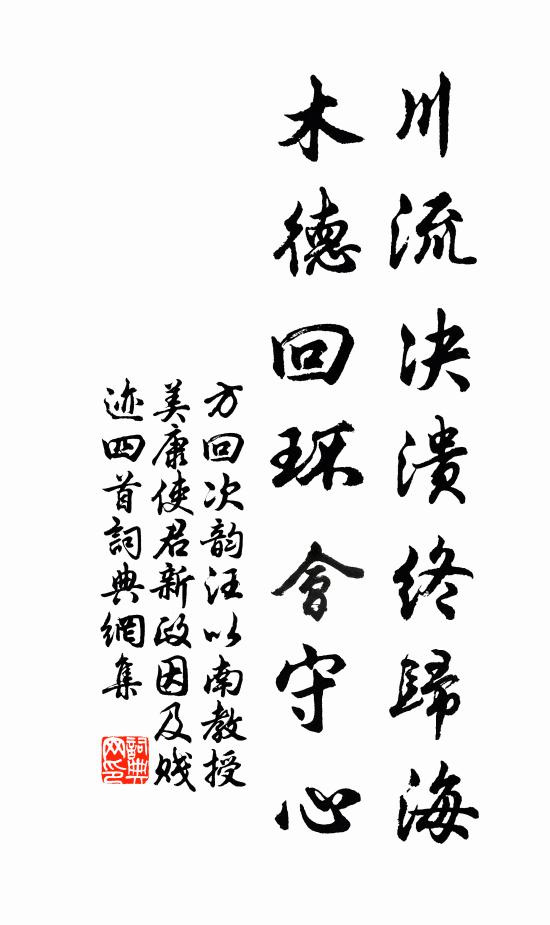 川流决溃终歸海
木德回环會守心
方回次韵汪以南教授
美康使君新政因及贱
迹四首詞典網集
詞典網印